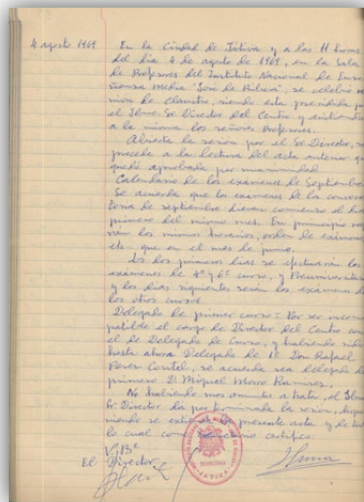 4 agosto 1969
En la Ciudad de Játiva y a las 11 horas
del dia 4 de agosto de 1969, en la Sala
de Profesores del Instituto Nacional de Ense
ñanza Media "José de Ribera", se celebró
nión de Claustro, siendo esta presidida por
el Ilmo. Sr. Director del Centro y asistiendo
a la misma los señores Profesores.
Abierta la sesión por el Sr. Director, se
procede a la lectura del acta anterior que
quedó aprobada por unanimidad.
Calendario de los exámenes de Septiembre
Se acuerda que los exámenes de la convoca
toria de septiembre dieran comienzo el dia
primero del mismo mes. En principio
los mismos horarios, orden de exámenes
etc. que en el mes de junio.
Los dos primeros dias se efectuarán los
exámenes de 4º y 6º curso, y Preuniversitario
y los dias siguientes serán los exámenes de
los otros cursos
Delegado de primer curso = Por ser incom
patible el cargo de Director del Centro con
el de Delegado de Curso, y habiendo sido
hasta ahora Delegado de 1º Don Rafael
se acuerda sea delegado de
primero D. Miguel Moro Ramírez.
No habiendo mas asuntos a tratar, el Ilmo
Sr. Director da por terminada la sesión,
se extiende la presente acta y de todo
lo cual como certifico.
Vº Bº
El Director